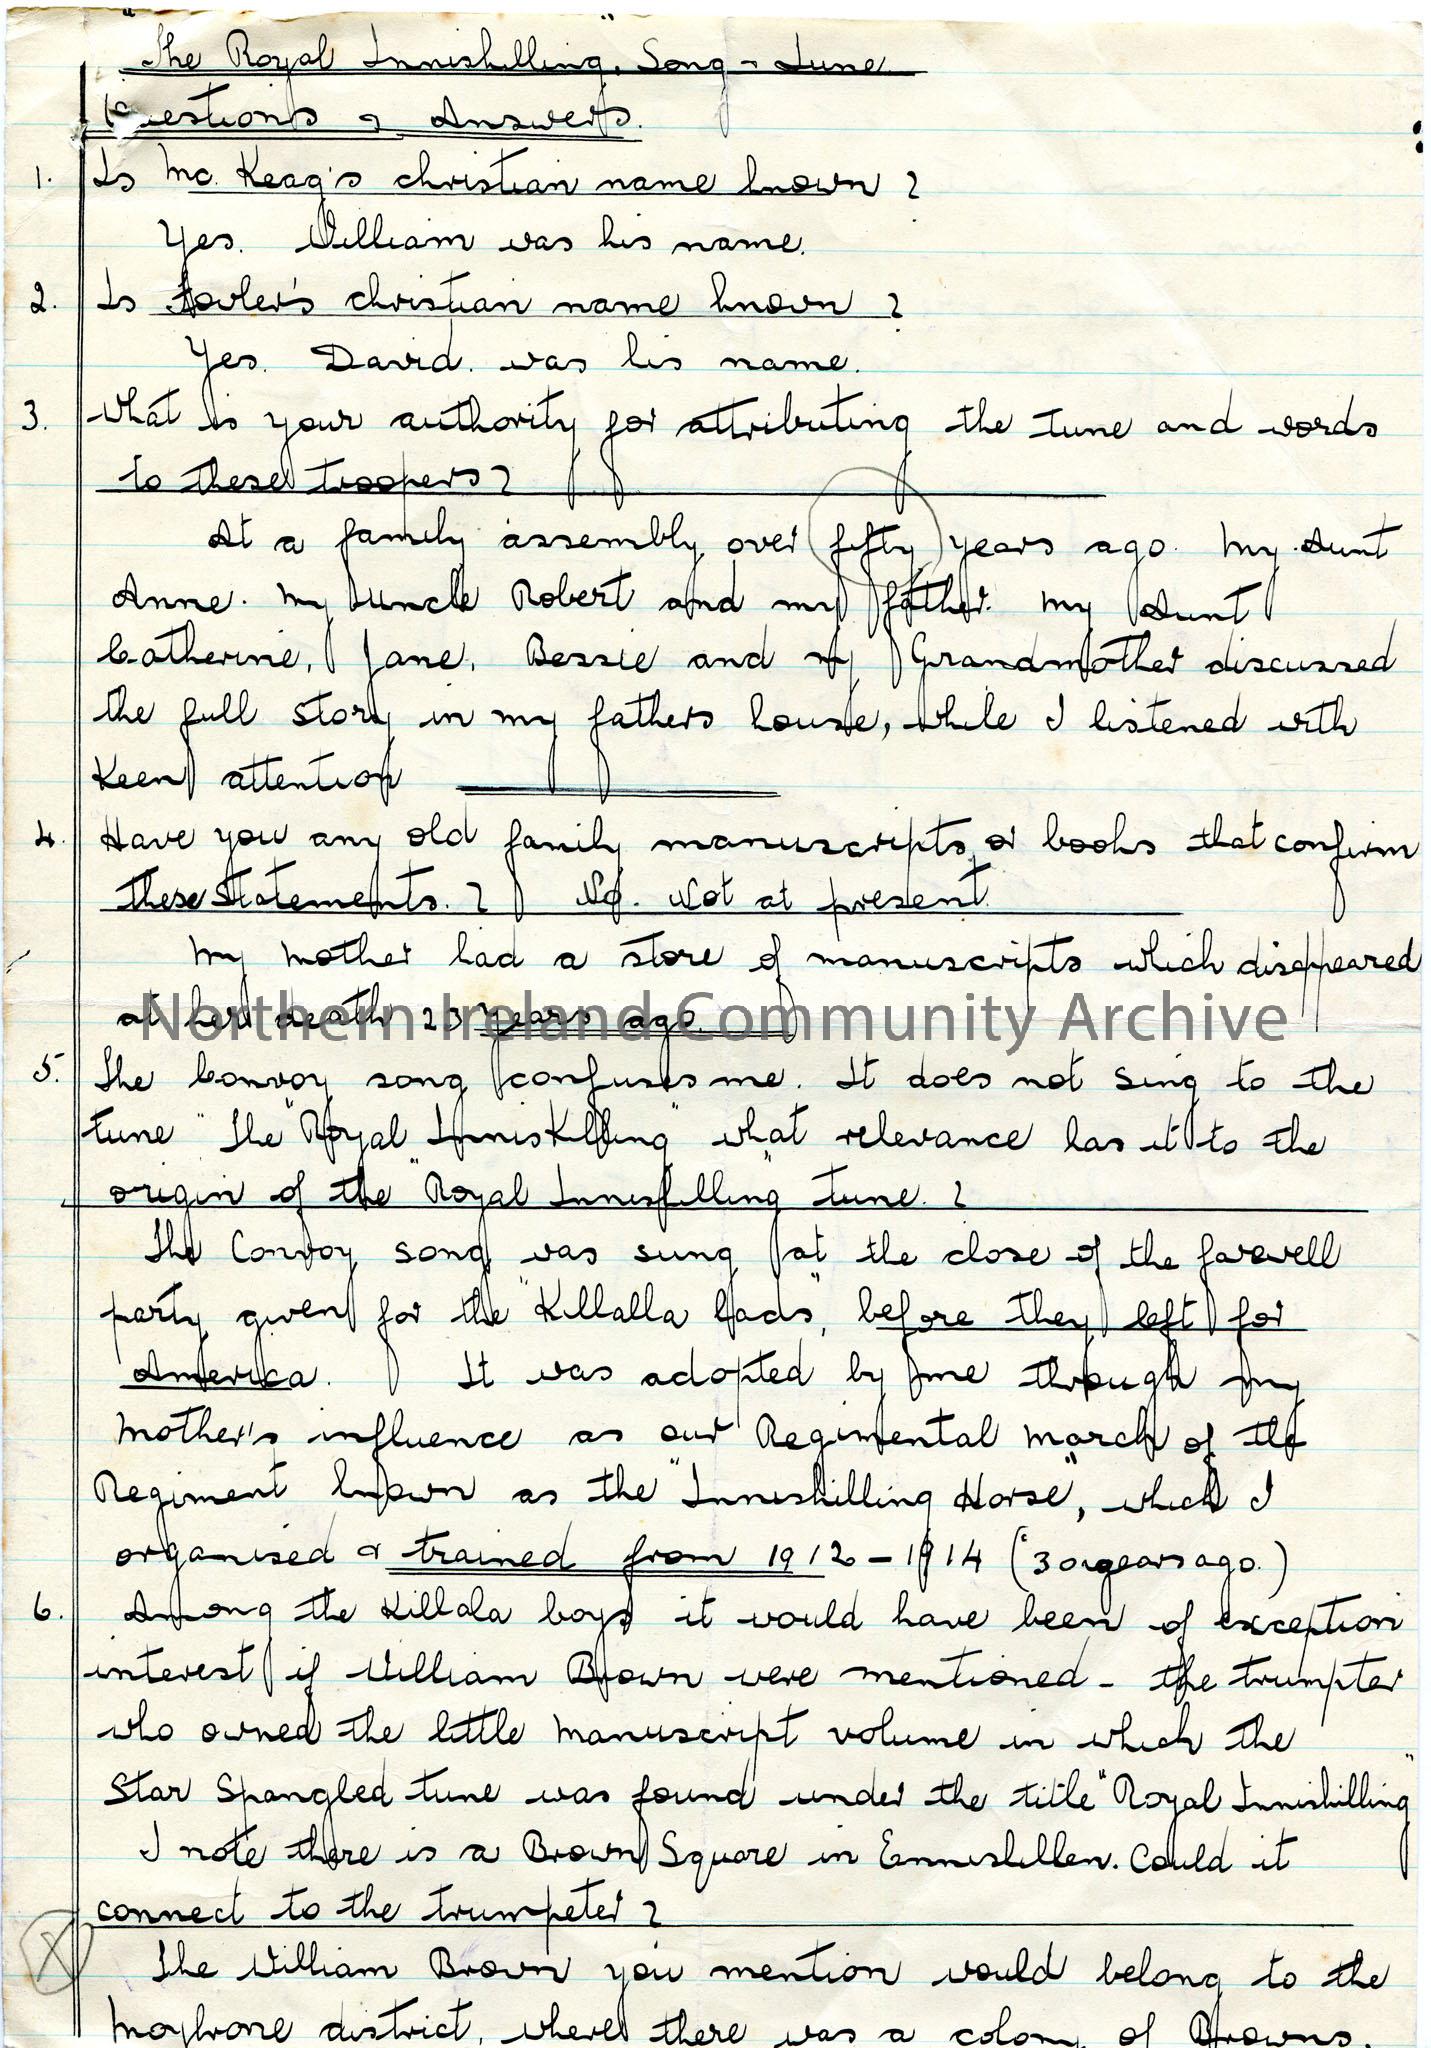 "The Royal Inniskilling" Song & Tune
Questions & Answers.
1. Is Mc. Keag's christian name known?
Yes. William was his name.
2. Is christian name known?
Yes. David. was his name.
3. What is your authority for attributing the tune and words
to these troopers?
At a family assembly over fifty years ago. My Aunt
Anne. My uncle Robert and my father. My Aunt
Catherine, Jane, Bessie and my Grandmother discussed
the full story in my fathers house, while I listened with
Keen attention
4. Have you any old family manuscripts or books that confirm
these statements.? No. Not at present.
My mother had a store of manuscripts which disappeared
at her death 23 years ago.
Northern Ireland Community Archive
5. The Convoy song confuses me. It does not sing to the
tune "The "Royal Inniskilling" what relevance has it to the
origin of the "Royal Inniskilling" tune.?
The Convoy song was sung at the close of the farewell
party given for the "Killalla lads", before they left for
America. It was adopted by me through my
Mother's influence as our Regimental March of the
Regiment known as the "Inniskilling Horse", which I
organised & trained from 1912-1914 (30 years ago.)
6. Among the Killala boys it would have been of exception
interest if William Brown were mentioned - the trumpter
who owned the little manuscript volume in which the
Star Spangled tune was found under the title "Royal Inniskilling"
I note there is a Brown Square in Enniskillen. Could it
connect to the trumpeter?
X The William Brown you mention would belong to the
district, where there was a colony of Browns.